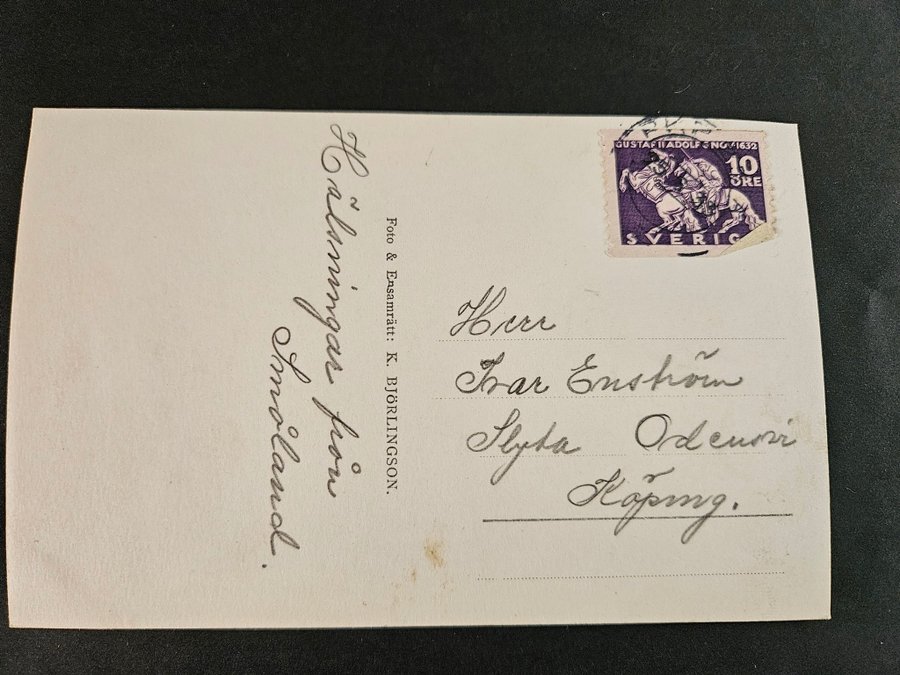 Hälsningar från
Småland.
Foto & Ensamrätt: K. BJÖRLINGSON.
GUSTAF II ADOLF 6 NOV 1632
10
ÖRE
SVERIG
Herr
Ivar Enström
Slyta Odensvi
Köping.